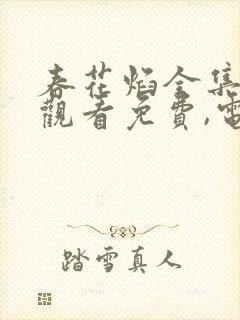 春花焰全集
觀看免費,電
踏雪真人